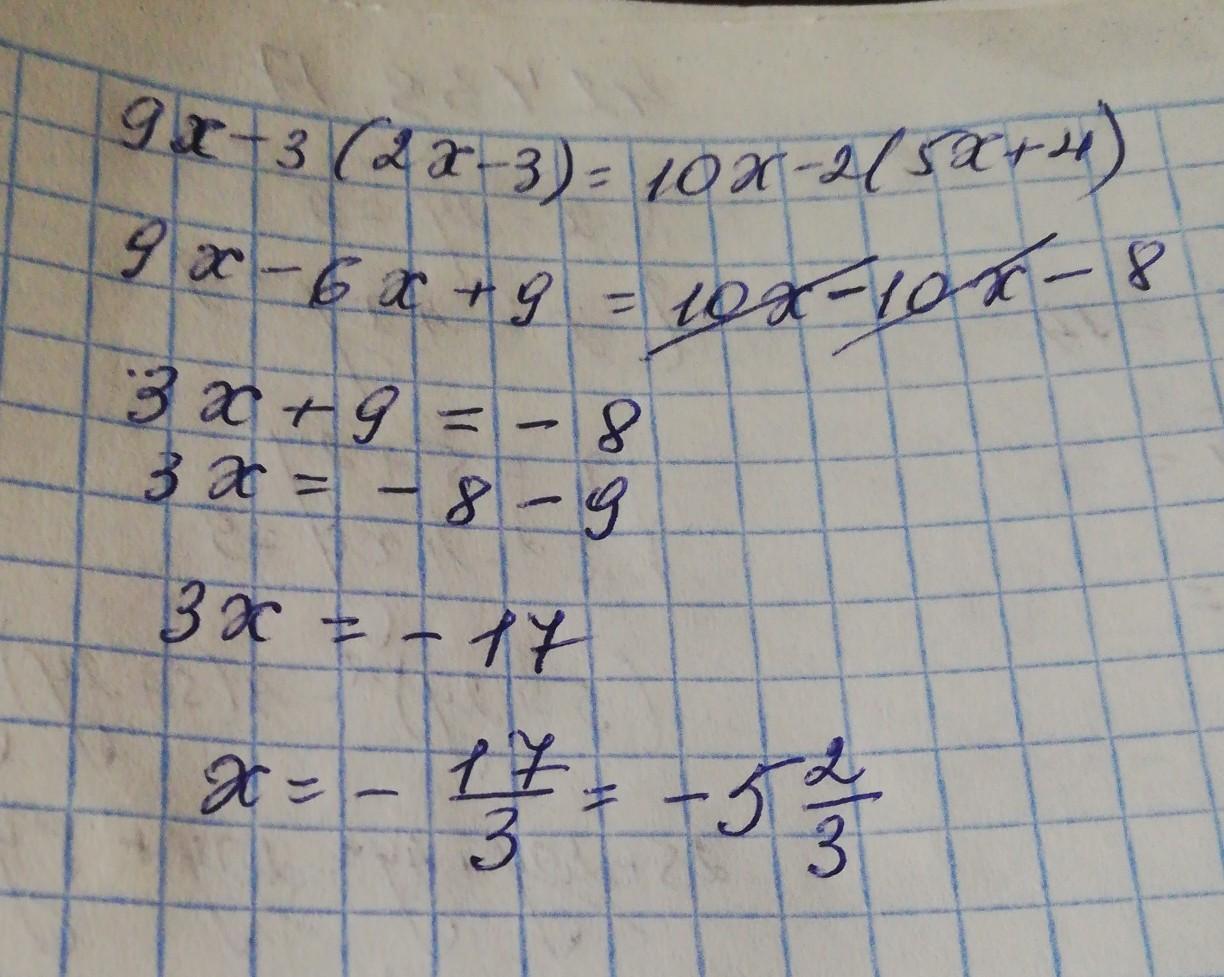 9x-3(2x-3)=10x-2(5x+4)
9x-6x+9=10x-10x-8
3x+9=-8
3x=-8-9
3x=-17
x=-17/3=-5 2/3